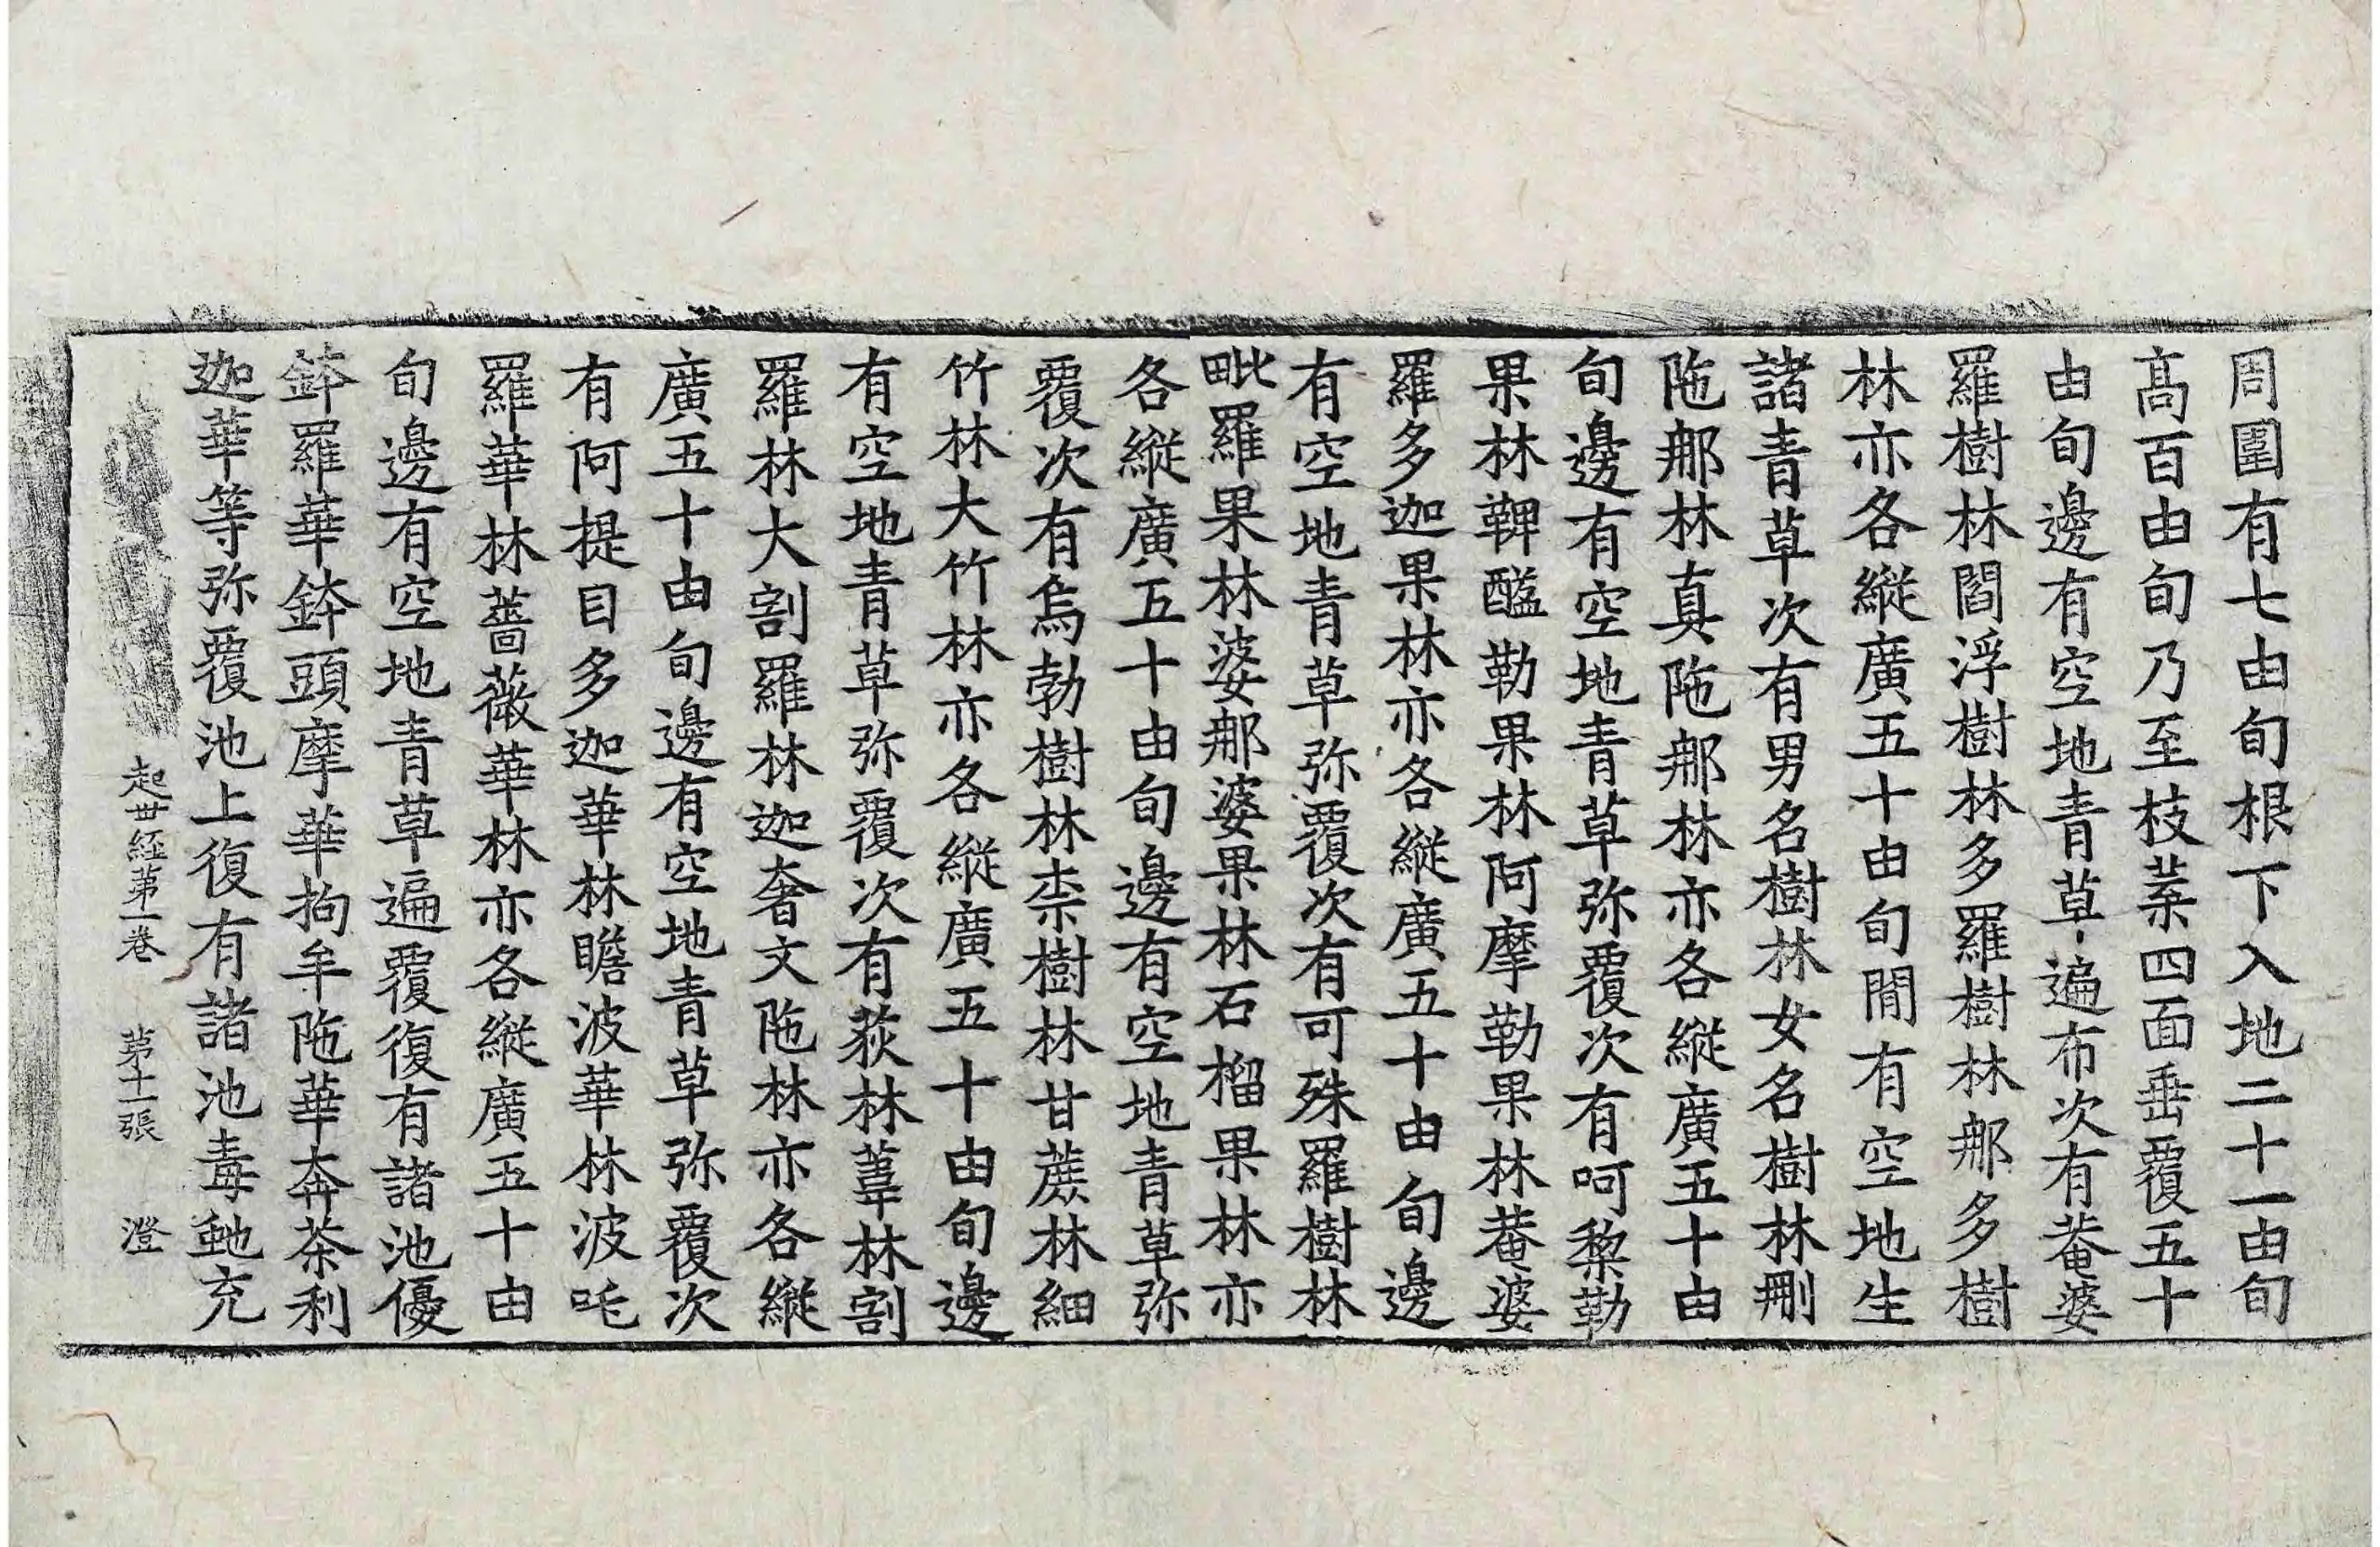 周圍有七由旬根下入地二十一由旬
髙百由旬乃至枝葉四面垂覆五十
由旬邊有空地青草遍布次有菴婆
羅樹林閻浮樹林多羅樹林那多樹
林亦各縱廣五十由旬閒有空地生
諸青草次有男名樹林女名樹林刪
陁那林真陁那林亦各縱廣五十由
旬邊有空地青草弥覆次有呵黎勒
果林鞞醯勒果林阿摩勒果林菴婆
羅多迦果林亦各縱廣五十由旬邊
有空地青草弥覆次有可殊羅樹林
毗羅果林婆那婆果林石榴果林亦
各縱廣五十由旬邊有空地青草弥
覆次有烏勃樹林柰樹林甘蔗林細
竹林大竹林亦各縱廣五十由旬邊
有空地青草弥覆次有荻林葦林割
羅林大割羅林迦奢文陁林亦各縱
廣五十由旬邊有空地青草弥覆次
有阿提目多迦華林瞻波華林波吒
羅華林薔薇華林亦各縱廣五十由
旬邊有空地青草遍覆復有諸池優
鉢羅華鉢頭摩華拘牟陁華奔茶利
迦華等弥覆池上復有諸池毒虵充
起世経第一卷 第十一張 澄